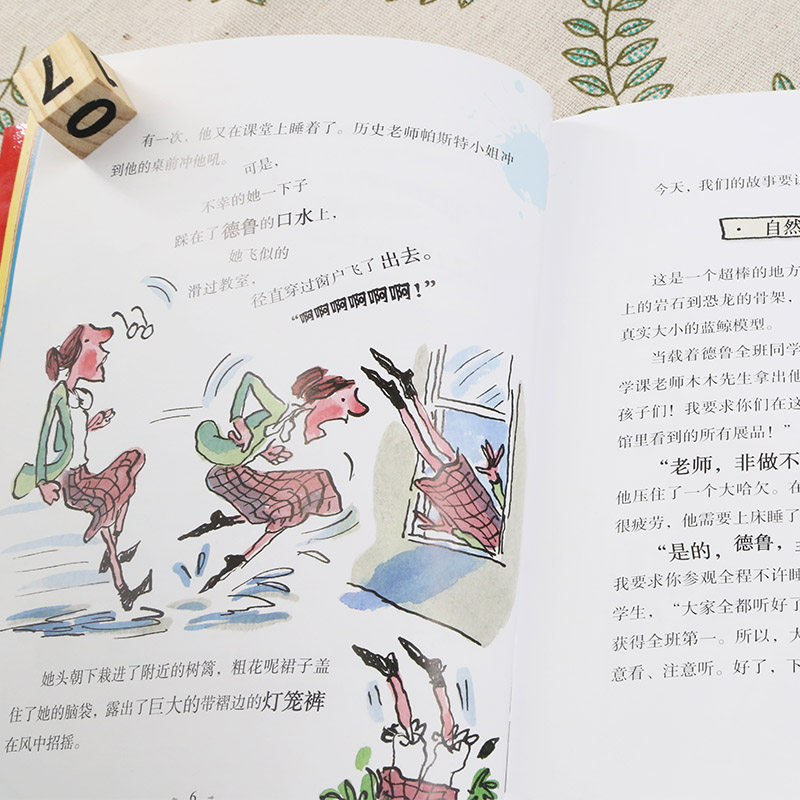 有一次，他又在课堂上睡着了。历史老师帕斯特小姐冲
到他的桌前冲他吼。可是，
不幸的她一下子
踩在了德鲁的口水上，
她飞似的
滑过教室，
径直穿过窗户飞了出去。
“啊啊啊啊啊啊！”
她头朝下栽进了附近的树篱，粗花呢裙子盖
住了她的脑袋，露出了巨大的带褶边的灯笼裤
在风中招摇。
6
今天，我们的故事要
自然
这是一个超棒的地方
上的岩石到恐龙的骨架，
真实大小的蓝鲸模型。
当载着德鲁全班同学
学课老师木木先生拿出他
孩子们！我要求你们在这
馆里看到的所有展品！”
“老师，非做不
他压住了一个大哈欠。在
很疲劳，他需要上床睡了
“是的，德鲁，
我要求你参观全程不许睡
学生，“大家全都听好了
获得全班第一。所以，大
意看、注意听。好了，下
7
0